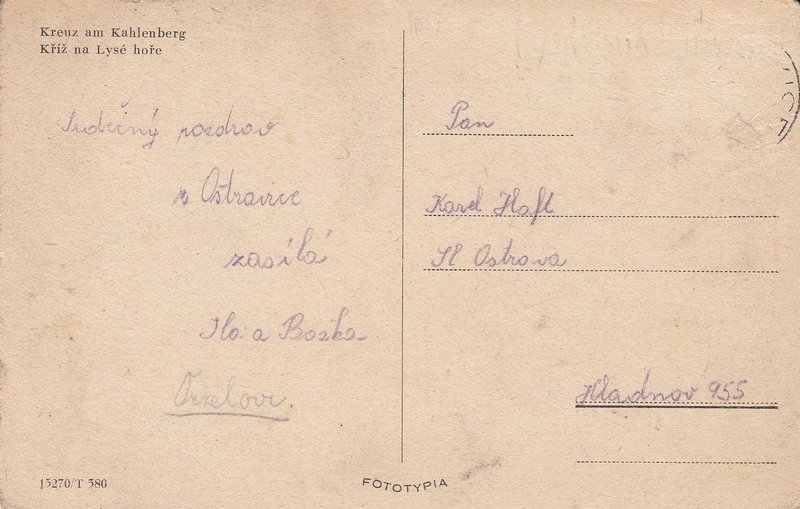 Kreuz am Kahlenberg
Kříž na Lysé hoře
Srdečný pozdrav
z Ostravice
zasílá
a Božka
Pan
Karel Haft
Sl Ostrava
Hladnov 955
15270/T 580
FOTOTYPIA